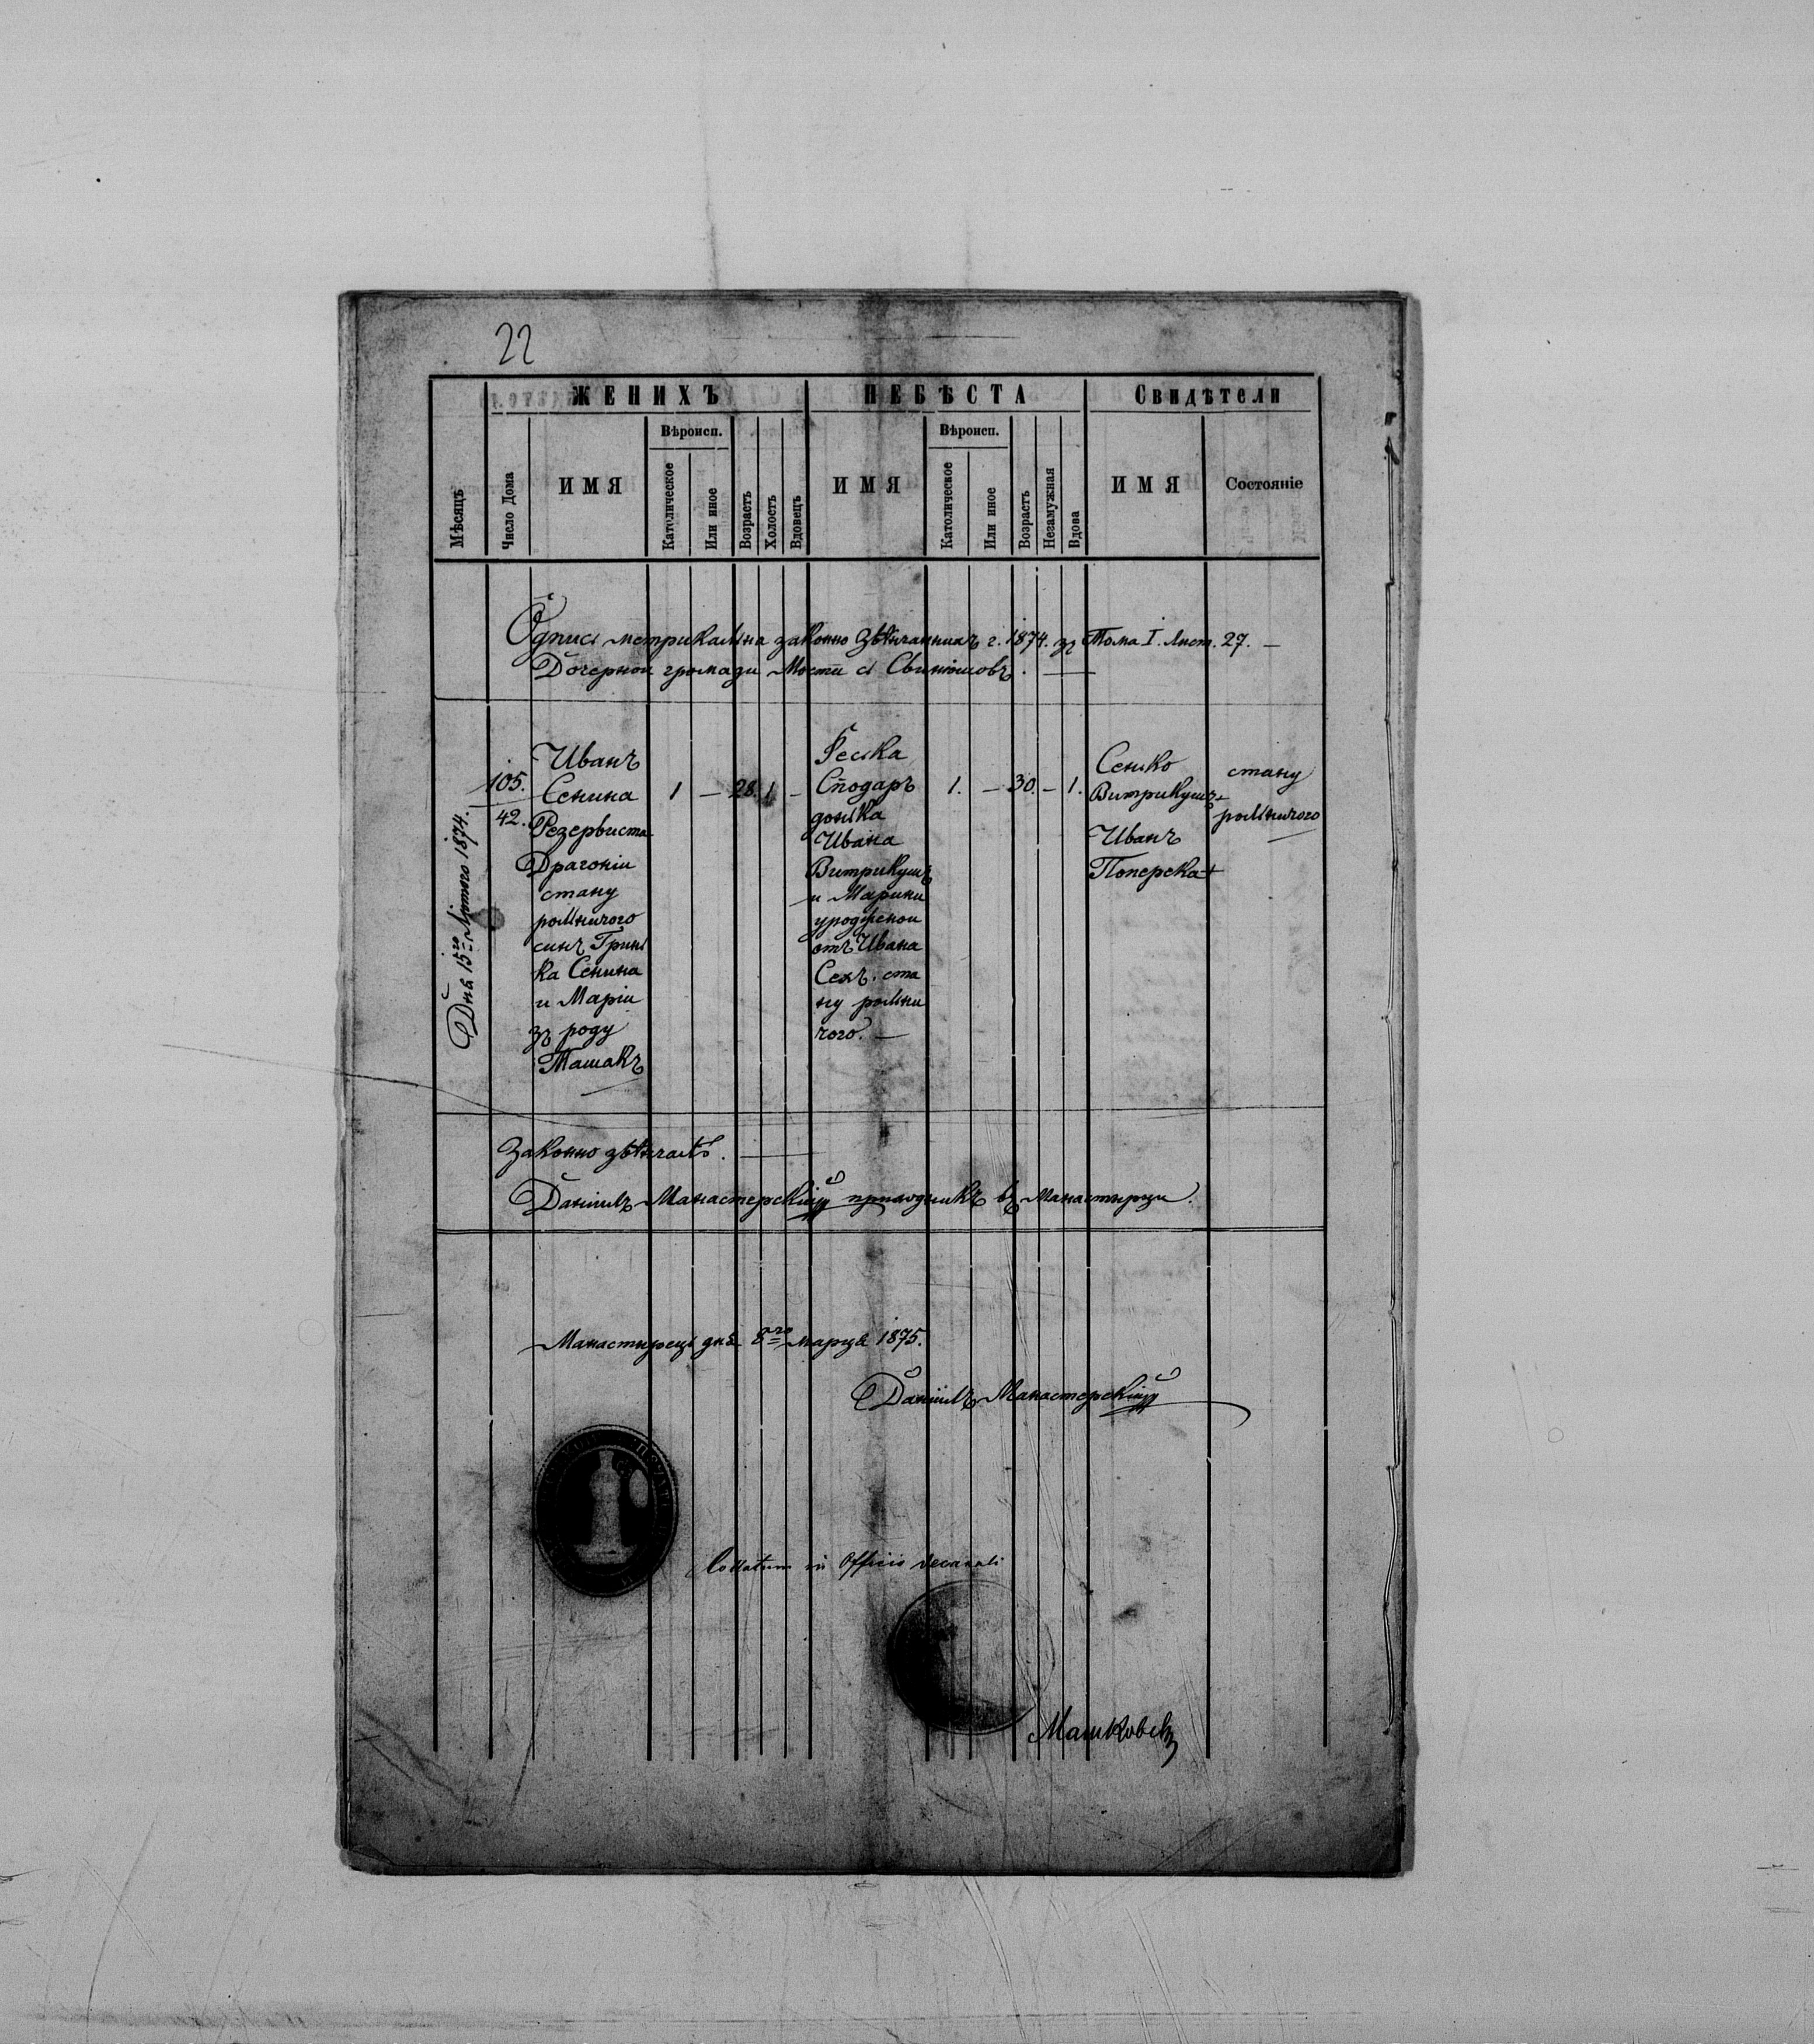 22
ЖЕНИХЪ НЕВѢСТА Свидѣтели
Мѣсяцъ
Число Дома
ИМЯ
Вѣроисп.
Католическое
Или иное
Возрастъ
Холостъ
Вдовецъ
ИМЯ
Вѣроисп.
Католическое
Или иное
Возрастъ
Незамужная
Вдова
ИМЯ
Состояніе
Одпись метрикальна законно звѣнчанныхъ г. 1874. зъ Тома I. Лист. 27. —
Дочернои громади Мости
Дня 15го Лютого 1874.
105.
42.
Иванъ
Сенина
Резервиста
Драгоніи
стану
рольничого
синъ Гринь
ка Сенина
и Маріи
зъ роду
Ташакъ
1 — 28. 1 —
Феська
Сподаръ
донька
Ивана
Витрикушъ
и Марини
урожденои
отъ Ивана
Сехъ. ста
ну рольни
чого. —
1. — 30. — 1.
Сенько
Витрикушъ +
Иванъ
Поперека +
стану
рольничого
Законно звѣнчалъ. —
Даніилъ Манастерскій приходникъ въ Манастирци.
Манастирець дня 8го марця 1875.
Даніилъ Манастерскій
Collatum in Officio decanali